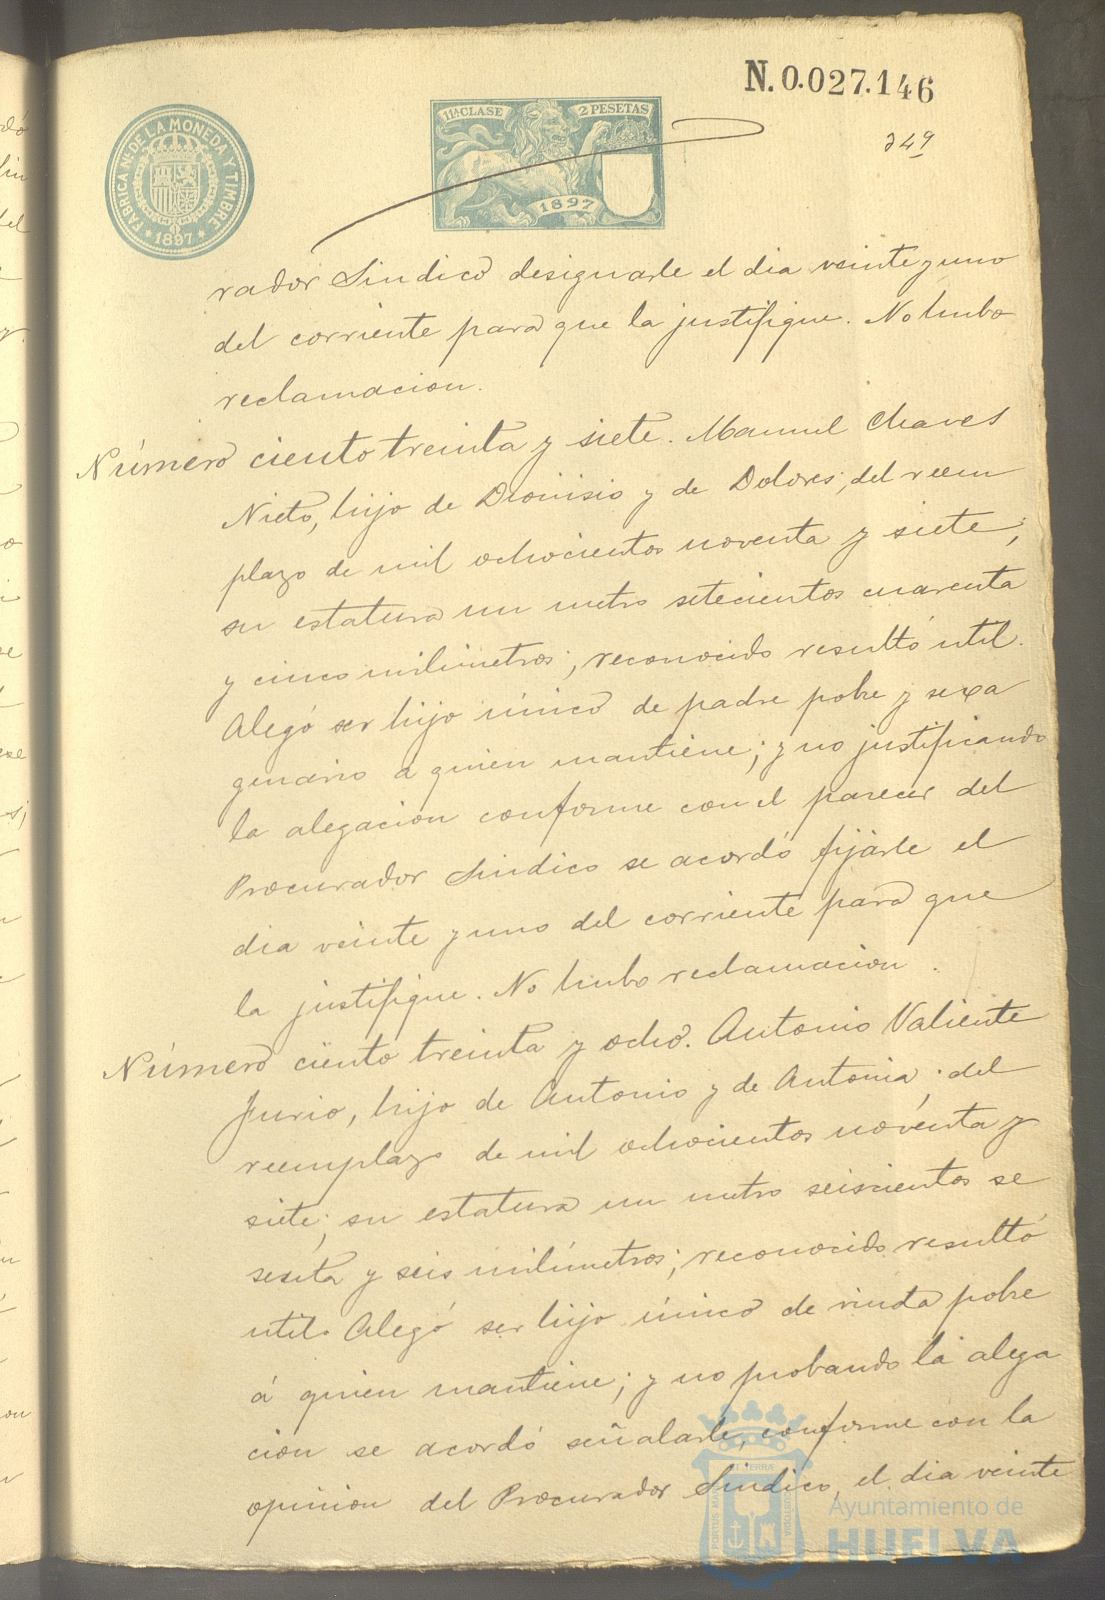 N.0.027.146
FABRICA Nal. DE LA MONEDA Y TIMBRE
* 1897 *
11ª CLASE
2 PESETAS
1897
249
rador Sindico designarle el dia veinte y uno
del corriente para que la justifique. No hubo
reclamacion.
Número ciento treinta y siete. Manuel Chaves
Nieto, hijo de Dionisio y de Dolores; del reem
plazo de mil ochocientos noventa y siete;
su estatura un metro setecientos cuarenta
y cinco milímetros; reconocido resultó util.
Alegó ser hijo único de padre pobre y sexa
genario á quien mantiene; y no justificando
la alegacion conforme con el parecer del
Procurador Sindico se acordó fijarle el
dia veinte y uno del corriente para que
la justifique. No hubo reclamacion.
Número ciento treinta y ocho. Antonio Valiente
hijo de Antonio y de Antonia; del
reemplazo de mil ochocientos noventa y
siete; su estatura un metro seiscientos se
senta y seis milímetros; reconocido resultó
util. Alegó ser hijo único de viuda pobre
á quien mantiene; y no probando la alega
cion se acordó señalarle, conforme con la
opinion del Procurador Sindico, el dia veinte
Ayuntamiento de
HUELVA